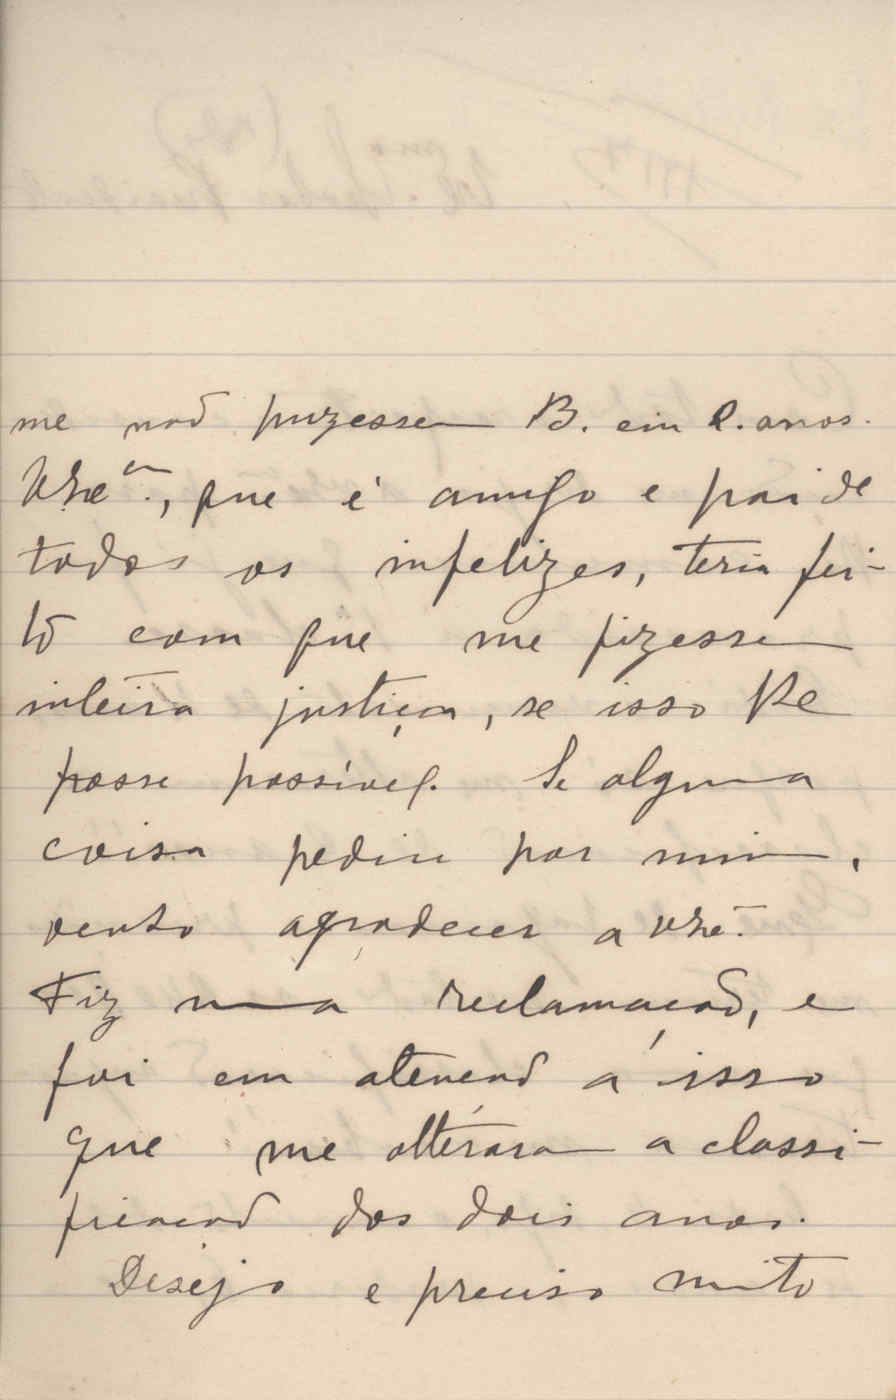 me não puzessem B. em 2. anos.
V. Exª., que é amigo e pai de
todos os infelizes, teria fei-
to com que me fizessem
inteira justiça, se isso lhe
fosse possível. Se alguma
coisa pediu por mim,
venho agradecer a V. Exª.
Fiz uma reclamação, e
foi em atenção a isso
que me alteraram a classi-
ficação dos dois anos.
Desejo e preciso muito